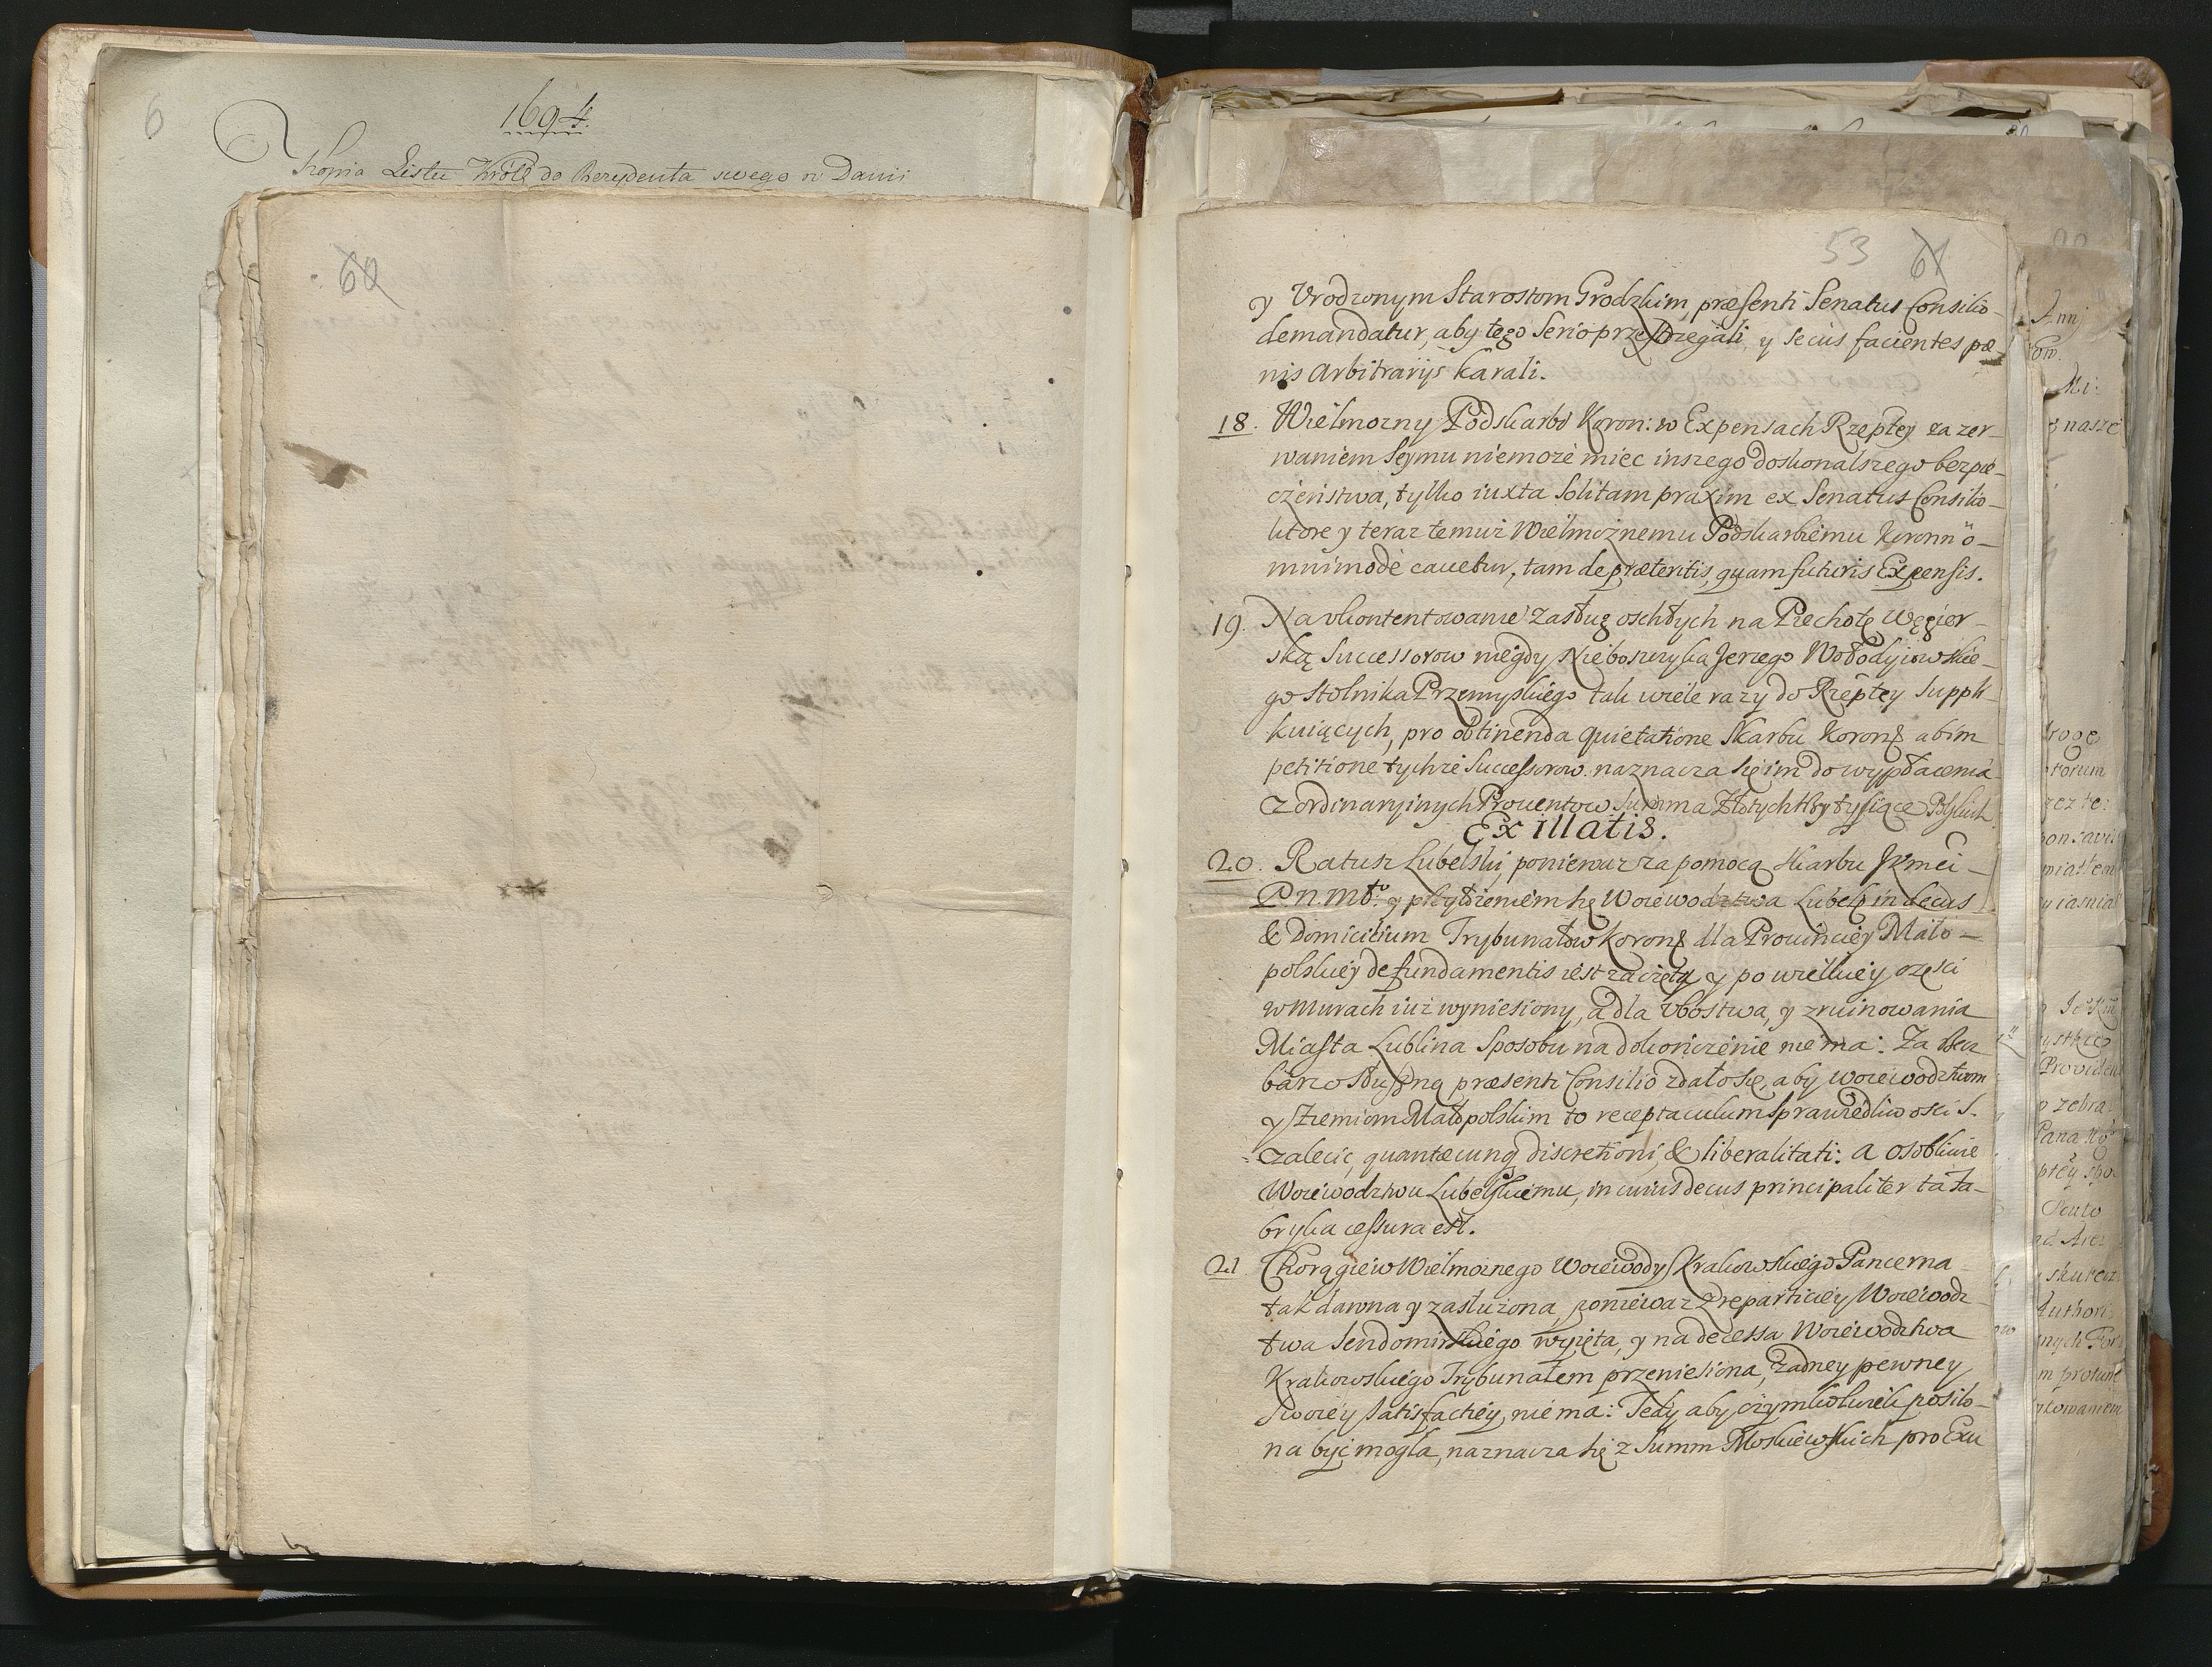 6
1694.
Kopia Listu Króla do Rezydenta swego w Danii
60
53 61
y Vrodzonym Starostom Grodzkim, præsenti Senatus Consilio
demandatur, aby tego Serio przestrzegali, y secus facientes pæ-
nis Arbitrarijs karali.
18. Wielmozny Podskarbi Koron: w Expensach Rzeptey za zer-
waniem Seymu niemoże miec inszego doskonalszego bezpie-
czeństwa, tylko iuxta Solitam praxim ex Senatus Consilio
ktore y teraz temuż Wielmożnemu Podskarbiemu Koronn o-
mnimode cavetur, tam de præteritis, quam futuris Expensis.
19. Na vkontentowanie zasług oschłych na Piechotę Węgier-
ską Successorow niegdy Nieboszczyka Jerzego Wołodyiowskie-
go Stolnika Przemyskiego tak wiele razy do Rzeptey suppli-
kuiących, pro obtinenda quietatione Skarbu Koron: ab im
petitione tychże Successorow. naznacza się im do wypłacenia
z ordinaryinych Prouentow Summa Złotych trzy tysiące Polskich
Ex illatis.
20. Ratusz Lubelski, poniewaz za pomocą Skarbu JKmci
P. n. Mił: y przyłożeniem się Woiewodztwa Lubel: in decus
& Domicilium Trybunałow Koron: dla Prouinciey Mało-
polskiey de fundamentis iest zaczęty y po wielkiey części
w Murach iuż wyniesiony, a dla vbóstwa, y zruinowania
Miasta Lublina Sposobu na dokończenie nie ma: Za rzecz
barzo słuszną præsenti Consilio zdało się, aby Woiewodztwom
y Ziemiom Małopolskim to receptaculum Sprawiedliwości S.
zalecic, quantæcunq discretioni, & liberalitati: a osobliwie
Woiewodztwu Lubelskiemu, in cuius decus principaliter ta fa-
bryka cessura est.
21 Chorągiew Wielmoznego Woiewody Krakowskiego Pancerna
tak dawna y zasłużona, ponieważ z repartitiey Woiewodz
twa Sendomirskiego wyięta, y na decessa Woiewodztwa
Krakowskiego Trybunałem przeniesiona, żadney pewney
swoiey satisfactiey, nie ma: Tedy aby czymkolwiek posilo-
na być mogła, naznacza się z Summ Moskiewskich pro Exu